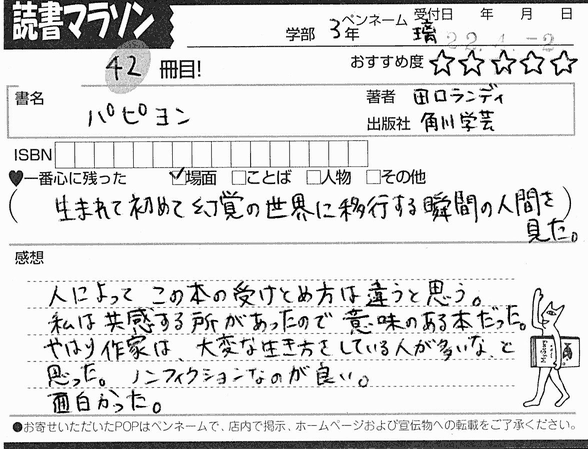 読書マラソン
学部 3年 ペンネーム 璃 受付日 年 月 日
22.4.-2
42 冊目!
おすすめ度 ☆☆☆☆☆
書名 パピヨン
著者 田口ランディ
出版社 角川学芸
ISBN
♥一番心に残った ☑場面 □ことば □人物 □その他
(生まれて初めて幻覚の世界に移行する瞬間の人間を)
見た。
感想
人によって この本の受けとめ方は違うと思う。
私は共感する所があったので意味のある本だった。
やはり作家は、大変な生き方をしている人が多いな、と
思った。 ノンフィクションなのが良い。
面白かった。
●お寄せいただいたPOPはペンネームで、店内で掲示、ホームページおよび宣伝物への転載をご了承ください。